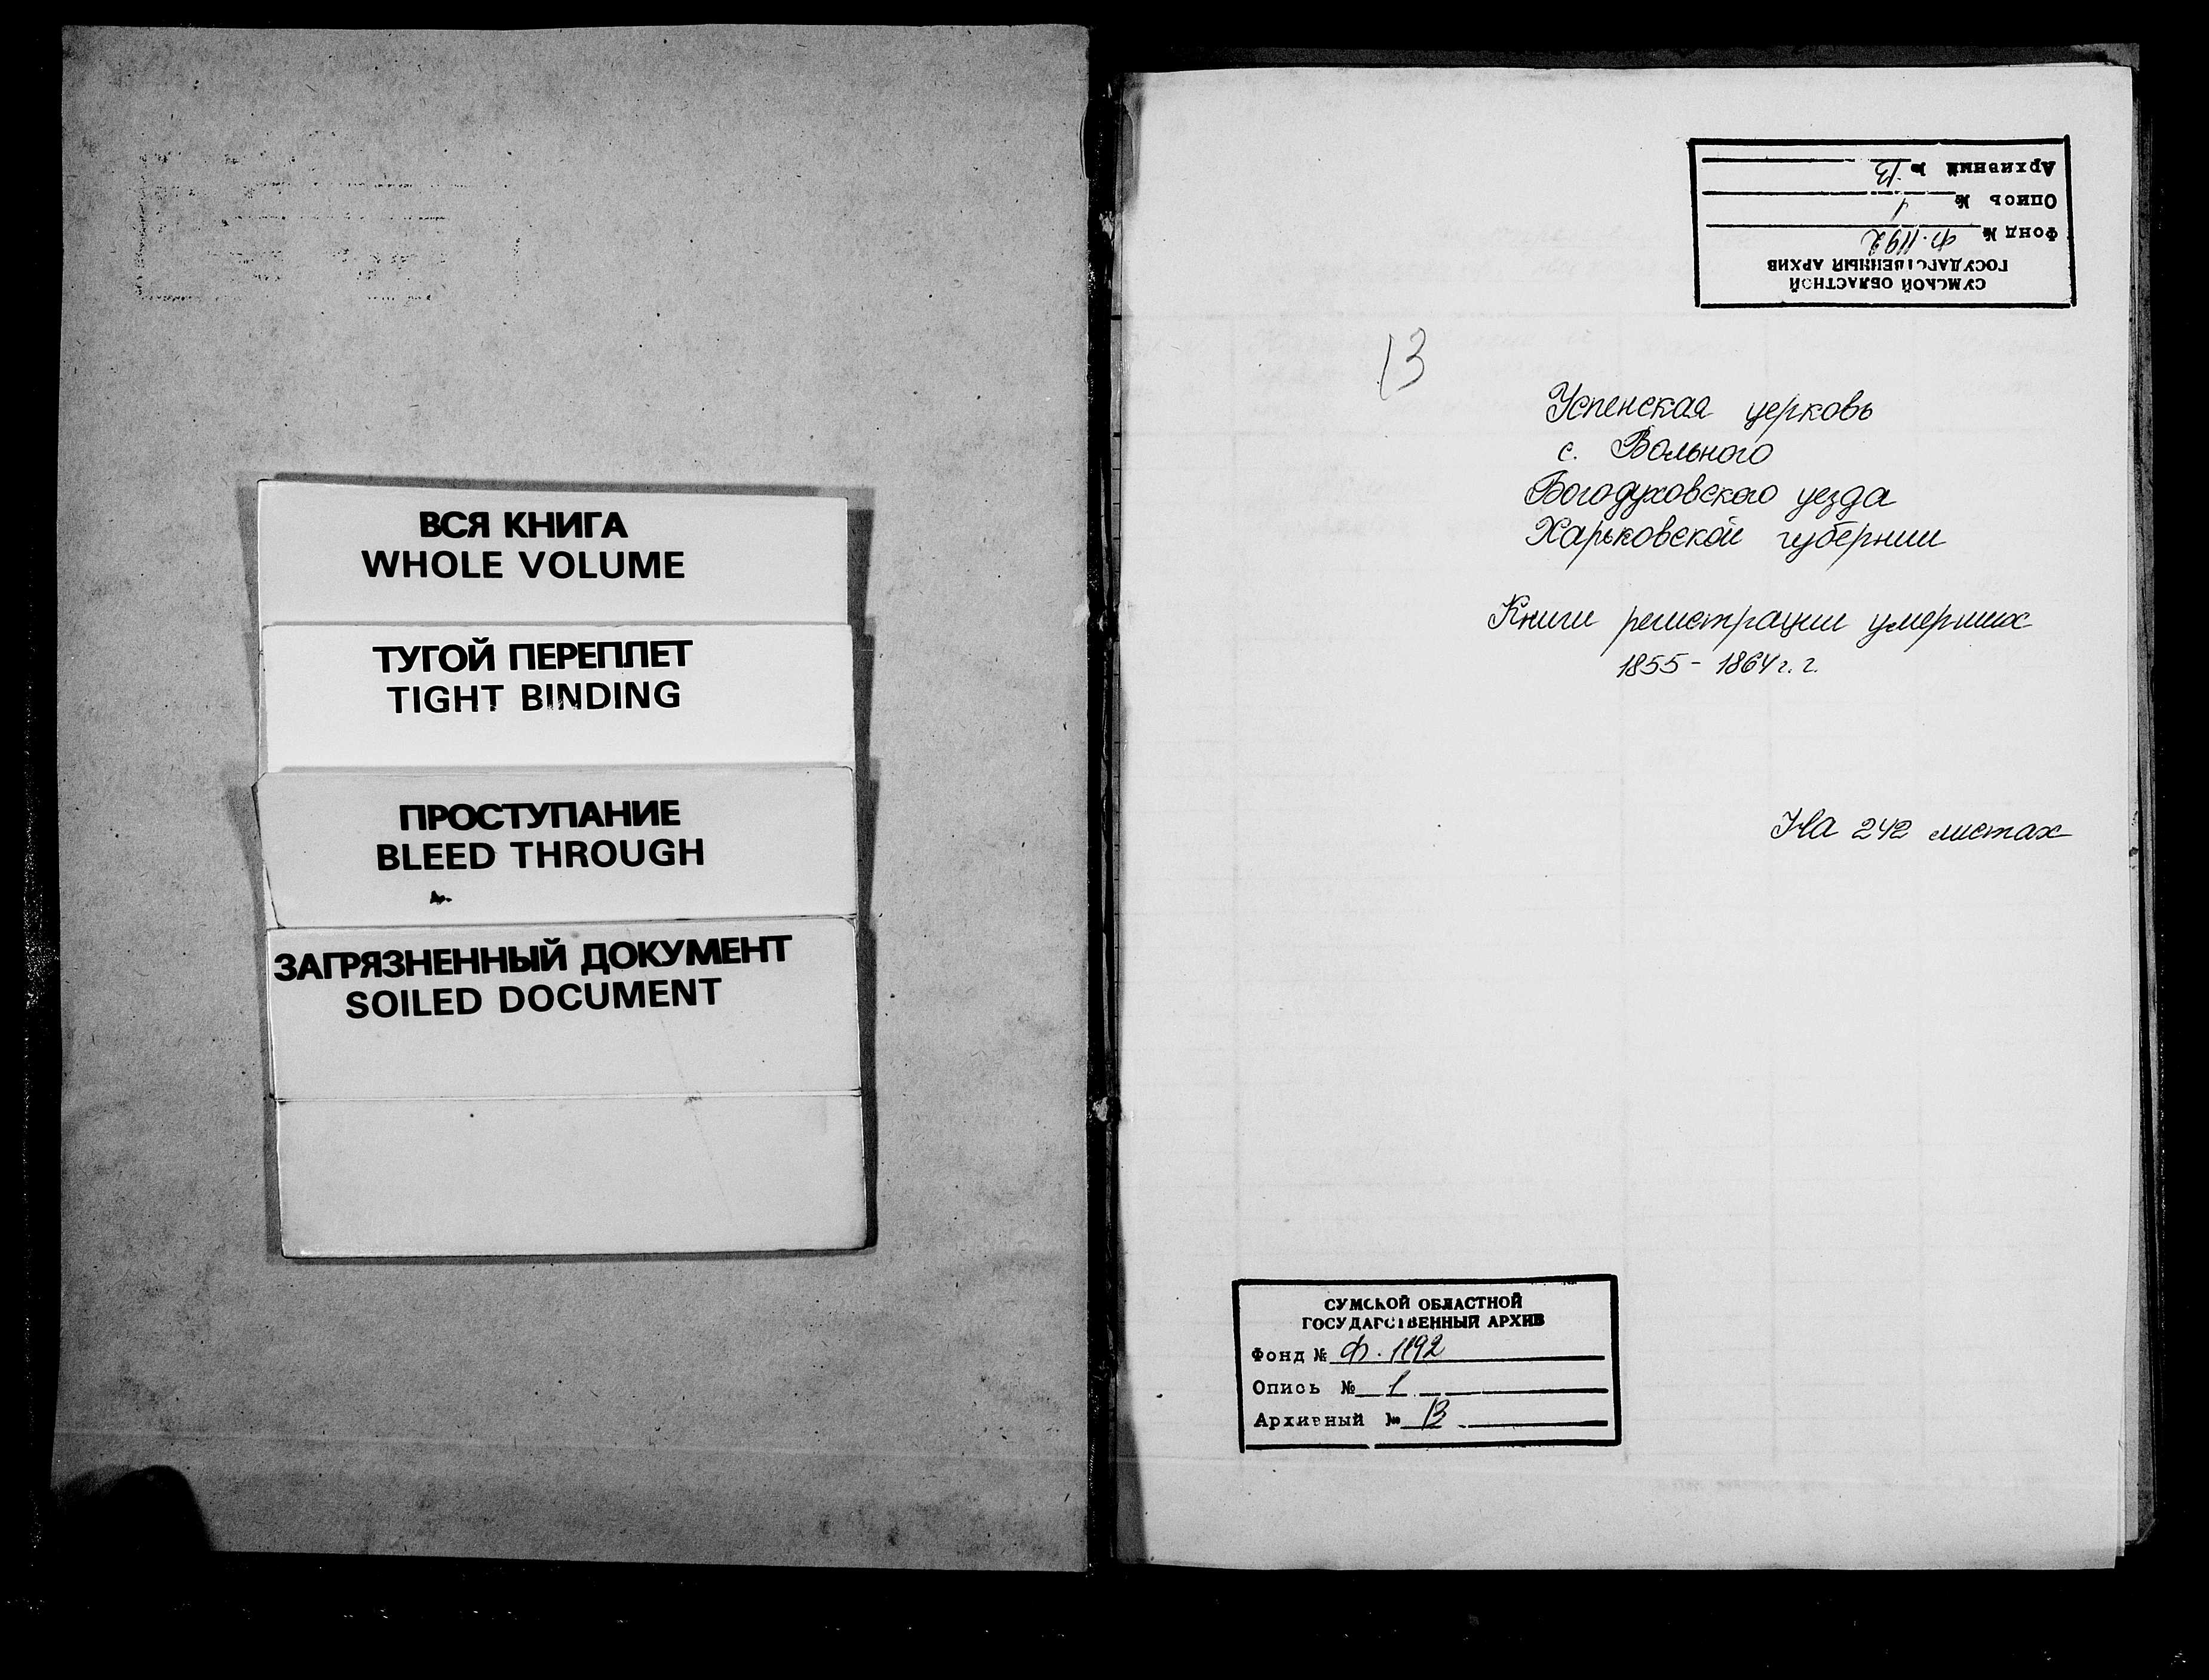 ВСЯ КНИГА
WHOLE VOLUME
ТУГОЙ ПЕРЕПЛЕТ
TIGHT BINDING
ПРОСТУПАНИЕ
BLEED THROUGH
ЗАГРЯЗНЕННЫЙ ДОКУМЕНТ
SOILED DOCUMENT
СУМСКОЙ ОБЛАСТНОЙ
ГОСУДАРСТВЕННЫЙ АРХИВ
Фонд № Ф. 1192
Опись № 1
Архивный № 13
13
Успенская церковь
с. Вольного
Богодуховского уезда
Харьковской губернии
Книги регистрации умерших
1855 - 1864 г. г.
На 242 листах
СУМСКОЙ ОБЛАСТНОЙ
ГОСУДАРСТВЕННЫЙ АРХИВ
Фонд № Ф. 1192
Опись № 1
Архивный № 13